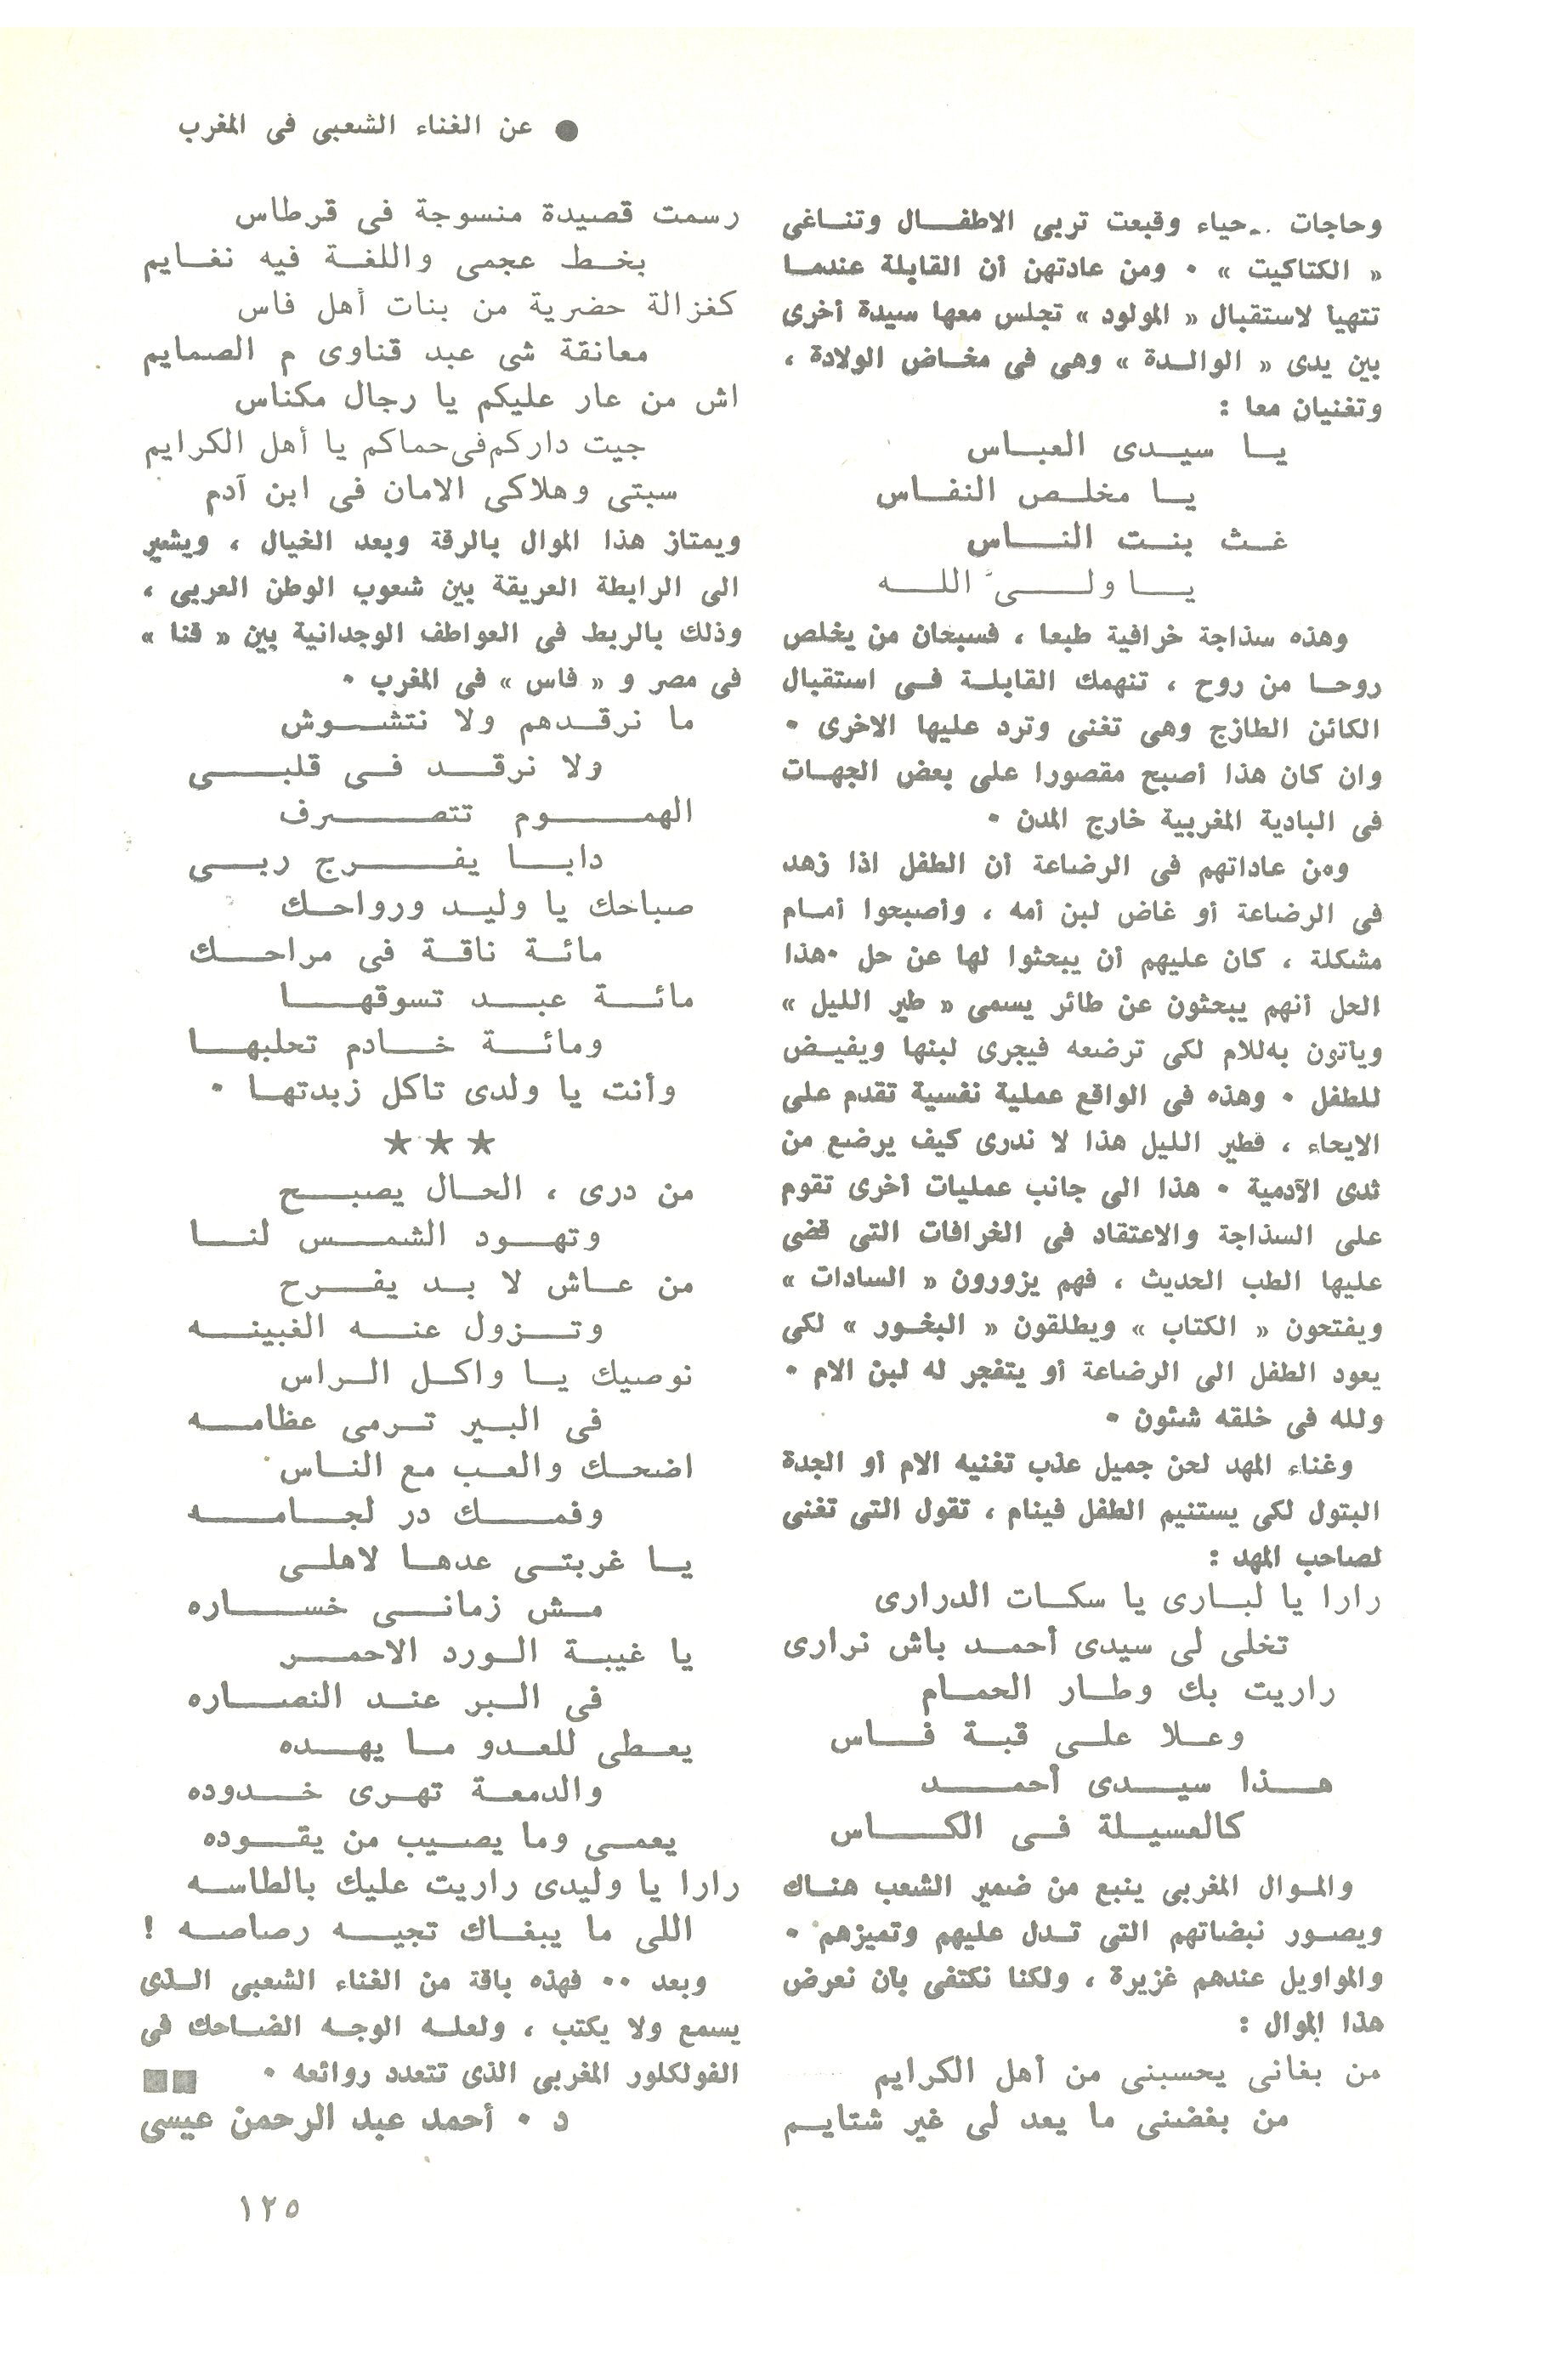 ● عن الغناء الشعبى فى المغرب
وحاجات حياء وقبعت تربى الاطفال وتناغى
« الكتاكيت » ٠ ومن عادتهن أن القابلة عندما
تتهيأ لاستقبال « المولود » تجلس معها سيدة أخرى
بين يدى « الوالدة » وهى فى مخاض الولادة ،
وتغنيان معا :
يا سيدى العباس
يا مخلص النفاس
غث بنت الناس
يا ولىّ الله
وهذه سذاجة خرافية طبعا ، فسبحان من يخلص
روحا من روح ، تنهمك القابلة فى استقبال
الكائن الطازج وهى تغنى وترد عليها الاخرى ٠
وان كان هذا أصبح مقصورا على بعض الجهات
فى البادية المغربية خارج المدن ٠
ومن عاداتهم فى الرضاعة أن الطفل اذا زهد
فى الرضاعة أو غاض لبن أمه ، وأصبحوا أمام
مشكلة ، كان عليهم أن يبحثوا لها عن حل ٠هذا
الحل أنهم يبحثون عن طائر يسمى « طير الليل »
ويأتون به للام لكى ترضعه فيجرى لبنها ويفيض
للطفل ٠ وهذه فى الواقع عملية نفسية تقدم على
الايحاء ، فطير الليل هذا لا ندرى كيف يرضع من
ثدى الآدمية ٠ هذا الى جانب عمليات أخرى تقوم
على السذاجة والاعتقاد فى الخرافات التى قضى
عليها الطب الحديث ، فهم يزورون « السادات »
ويفتحون « الكتاب » ويطلقون « البخور » لكى
يعود الطفل الى الرضاعة أو يتفجر له لبن الام ٠
ولله فى خلقه شئون ٠
وغناء المهد لحن جميل عذب تغنيه الام أو الجدة
البتول لكى يستنيم الطفل فينام ، تقول التى تغنى
لصاحب المهد :
رارا يا لبارى يا سكات الدرارى
تخلى لى سيدى أحمد باش نرارى
راريت بك وطار الحمام
وعلا على قبة فاس
هذا سيدى أحمد
كالعسيلة فى الكاس
والموال المغربى ينبع من ضمير الشعب هناك
ويصور نبضاتهم التى تدل عليهم وتميزهم ٠
والمواويل عندهم غزيرة ، ولكنا نكتفى بأن نعرض
هذا الموال :
من بغانى يحسبنى من أهل الكرايم
من بغضنى ما يعد لى غير شتايم
رسمت قصيدة منسوجة فى قرطاس
بخط عجمى واللغة فيه نغايم
كغزالة حضرية من بنات أهل فاس
معانقة شى عبد قناوى م الصمايم
اش من عار عليكم يا رجال مكناس
جيت داركم فى حماكم يا أهل الكرايم
سبتى وهلاكى الامان فى ابن آدم
ويمتاز هذا الموال بالرقة وبعد الخيال ، ويشير
الى الرابطة العريقة بين شعوب الوطن العربى ،
وذلك بالربط فى العواطف الوجدانية بين « قنا »
فى مصر و « فاس » فى المغرب ٠
ما نرقدهم ولا نتشوش
ولا نرقد فى قلبى
الهموم تتصرف
دابا يفرج ربى
صباحك يا وليد ورواحك
مائة ناقة فى مراحك
مائة عبد تسوقها
ومائة خادم تحلبها
وأنت يا ولدى تاكل زبدتها ٠
★ ★ ★
من درى ، الحال يصبح
وتهود الشمس لنا
من عاش لا بد يفرح
وتزول عنه الغبينه
نوصيك يا واكل الراس
فى البير ترمى عظامه
اضحك والعب مع الناس
وفمك در لجامه
يا غربتى عدها لاهلى
مش زمانى خساره
يا غيبة الورد الاحمر
فى البر عند النصاره
يعطى للعدو ما يهده
والدمعة تهرى خدوده
يعمى وما يصيب من يقوده
رارا يا وليدى راريت عليك بالطاسه
اللى ما يبغاك تجيه رصاصه !
وبعد ٠٠ فهذه باقة من الغناء الشعبى الذى
يسمع ولا يكتب ، ولعله الوجه الضاحك فى
الفولكلور المغربى الذى تتعدد روائعه ٠ ■■
د ٠ أحمد عبد الرحمن عيسى
١٢٥